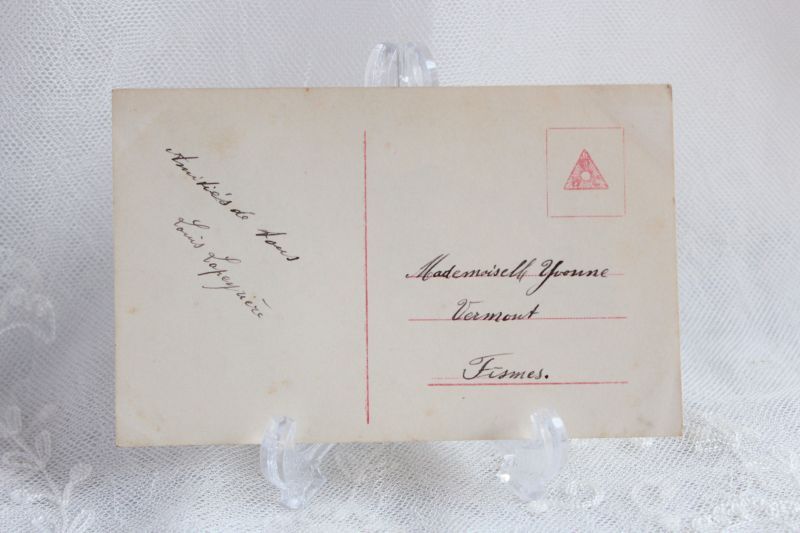 Amitiés de tous
Louis Lapeyrière
Mademoiselle Yvonne
Vermont
Fismes.